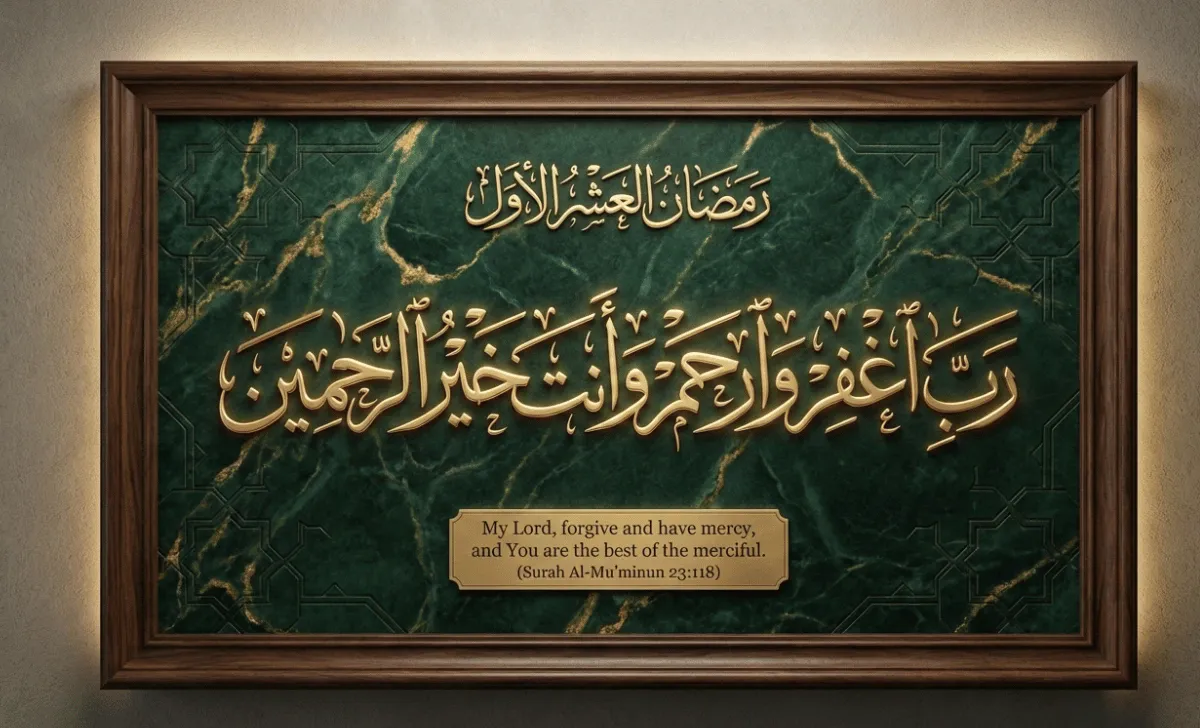 رَمَضَانُ العَشْرُ الأَوَل
رَبِّ ٱغْفِرْ وَٱرْحَمْ وَأَنتَ خَيْرُ الرَّحِمِيْن
My Lord, forgive and have mercy,
and You are the best of the merciful.
(Surah Al-Mu'minun 23:118)